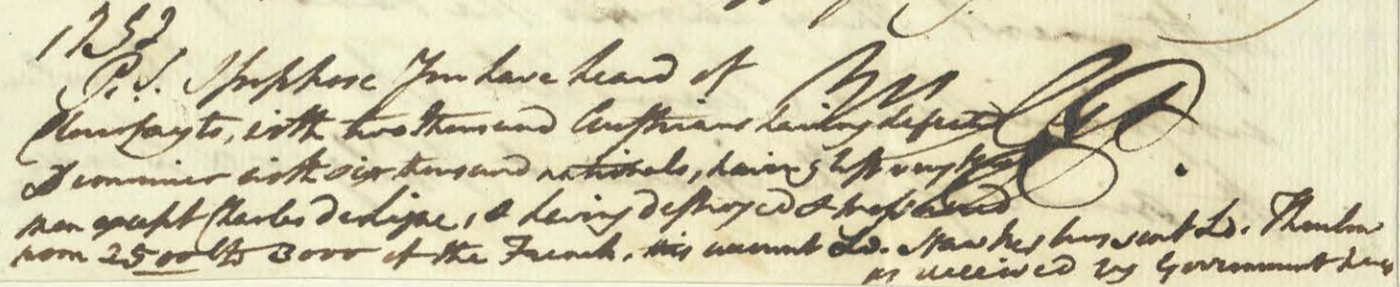 P.S. I suppose You have heard of
Clairfayts, with two thousand Austrians having defeated
Dumourier with six thousand nationals, having lost very few
men except Charles De Ligne, & having destroyed &
from 2500 to 3000 of the French. this account Ld. Hawkesbury sent Ld.
as received by Government here